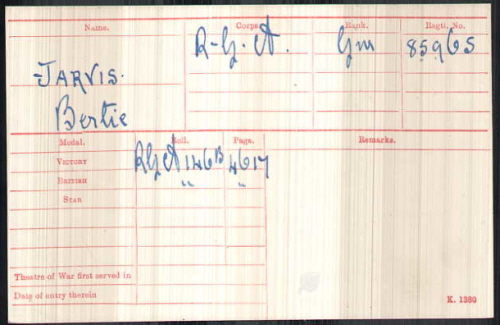 Name. Corps. Rank. Regtl. No.
R.G.A. Gnr 85965
JARVIS.
Bertie
Medal. Roll. Page. Remarks.
VICTORY RGA 146B 4617
BRITISH " "
STAR
Theatre of War first served in
Date of entry therein
K. 1380